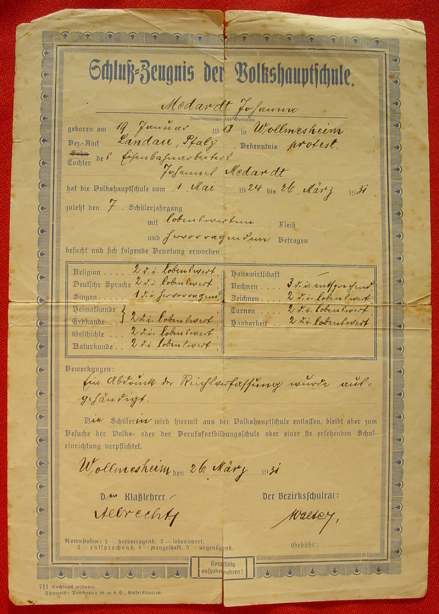 Schluß-Zeugnis der Volkshauptschule.
Medardt Johanna
geboren am 19. Januar 19 in Wollmesheim
Bez.-Amt Landau, Pfalz Bekenntnis protest
Tochter des Eisenbahnarbeiters
Medardt
hat die Volkshauptschule vom 1. Mai 1924 bis 26. März 1931
zuletzt den 7 Schülerjahrgang
mit lobenswertem Fleiß
und hervorragendem Betragen
besucht und sich folgende Benotung erworben:
Religion 2 d.i. lobenswert Hauswirtschaft
Deutsche Sprache 2 d.i. lobenswert Rechnen 3 d.i. entsprechend
Singen 1 d.i. hervorragend Zeichnen 2 d.i. lobenswert
Heimatkunde Turnen 2 d.i. lobenswert
Erdkunde 2 d.i. lobenswert Handarbeit 2 d.i. lobenswert
Geschichte 2 d.i. lobenswert
Naturkunde 2 d.i. lobenswert
Bemerkungen:
Ein Abdruck der Reichsverfassung wurde aus-
gehändigt.
Die Schülerin wird hiermit aus der Volkshauptschule entlassen, bleibt aber zum
Besuche der Volks- oder der Berufsfortbildungsschule oder einer sie ersetzenden Schul-
einrichtung verpflichtet.
Wollmesheim den 26. März 1931
Der Klaßlehrer: Der Bezirksschulrat:
Albrecht
Notenstufen: 1 = hervorragend, 2 = lobenswert,
3 = entsprechend, 4 = mangelhaft, 5 = ungenügend.
Gebühr:
Sorgfältig
aufzubewahren!